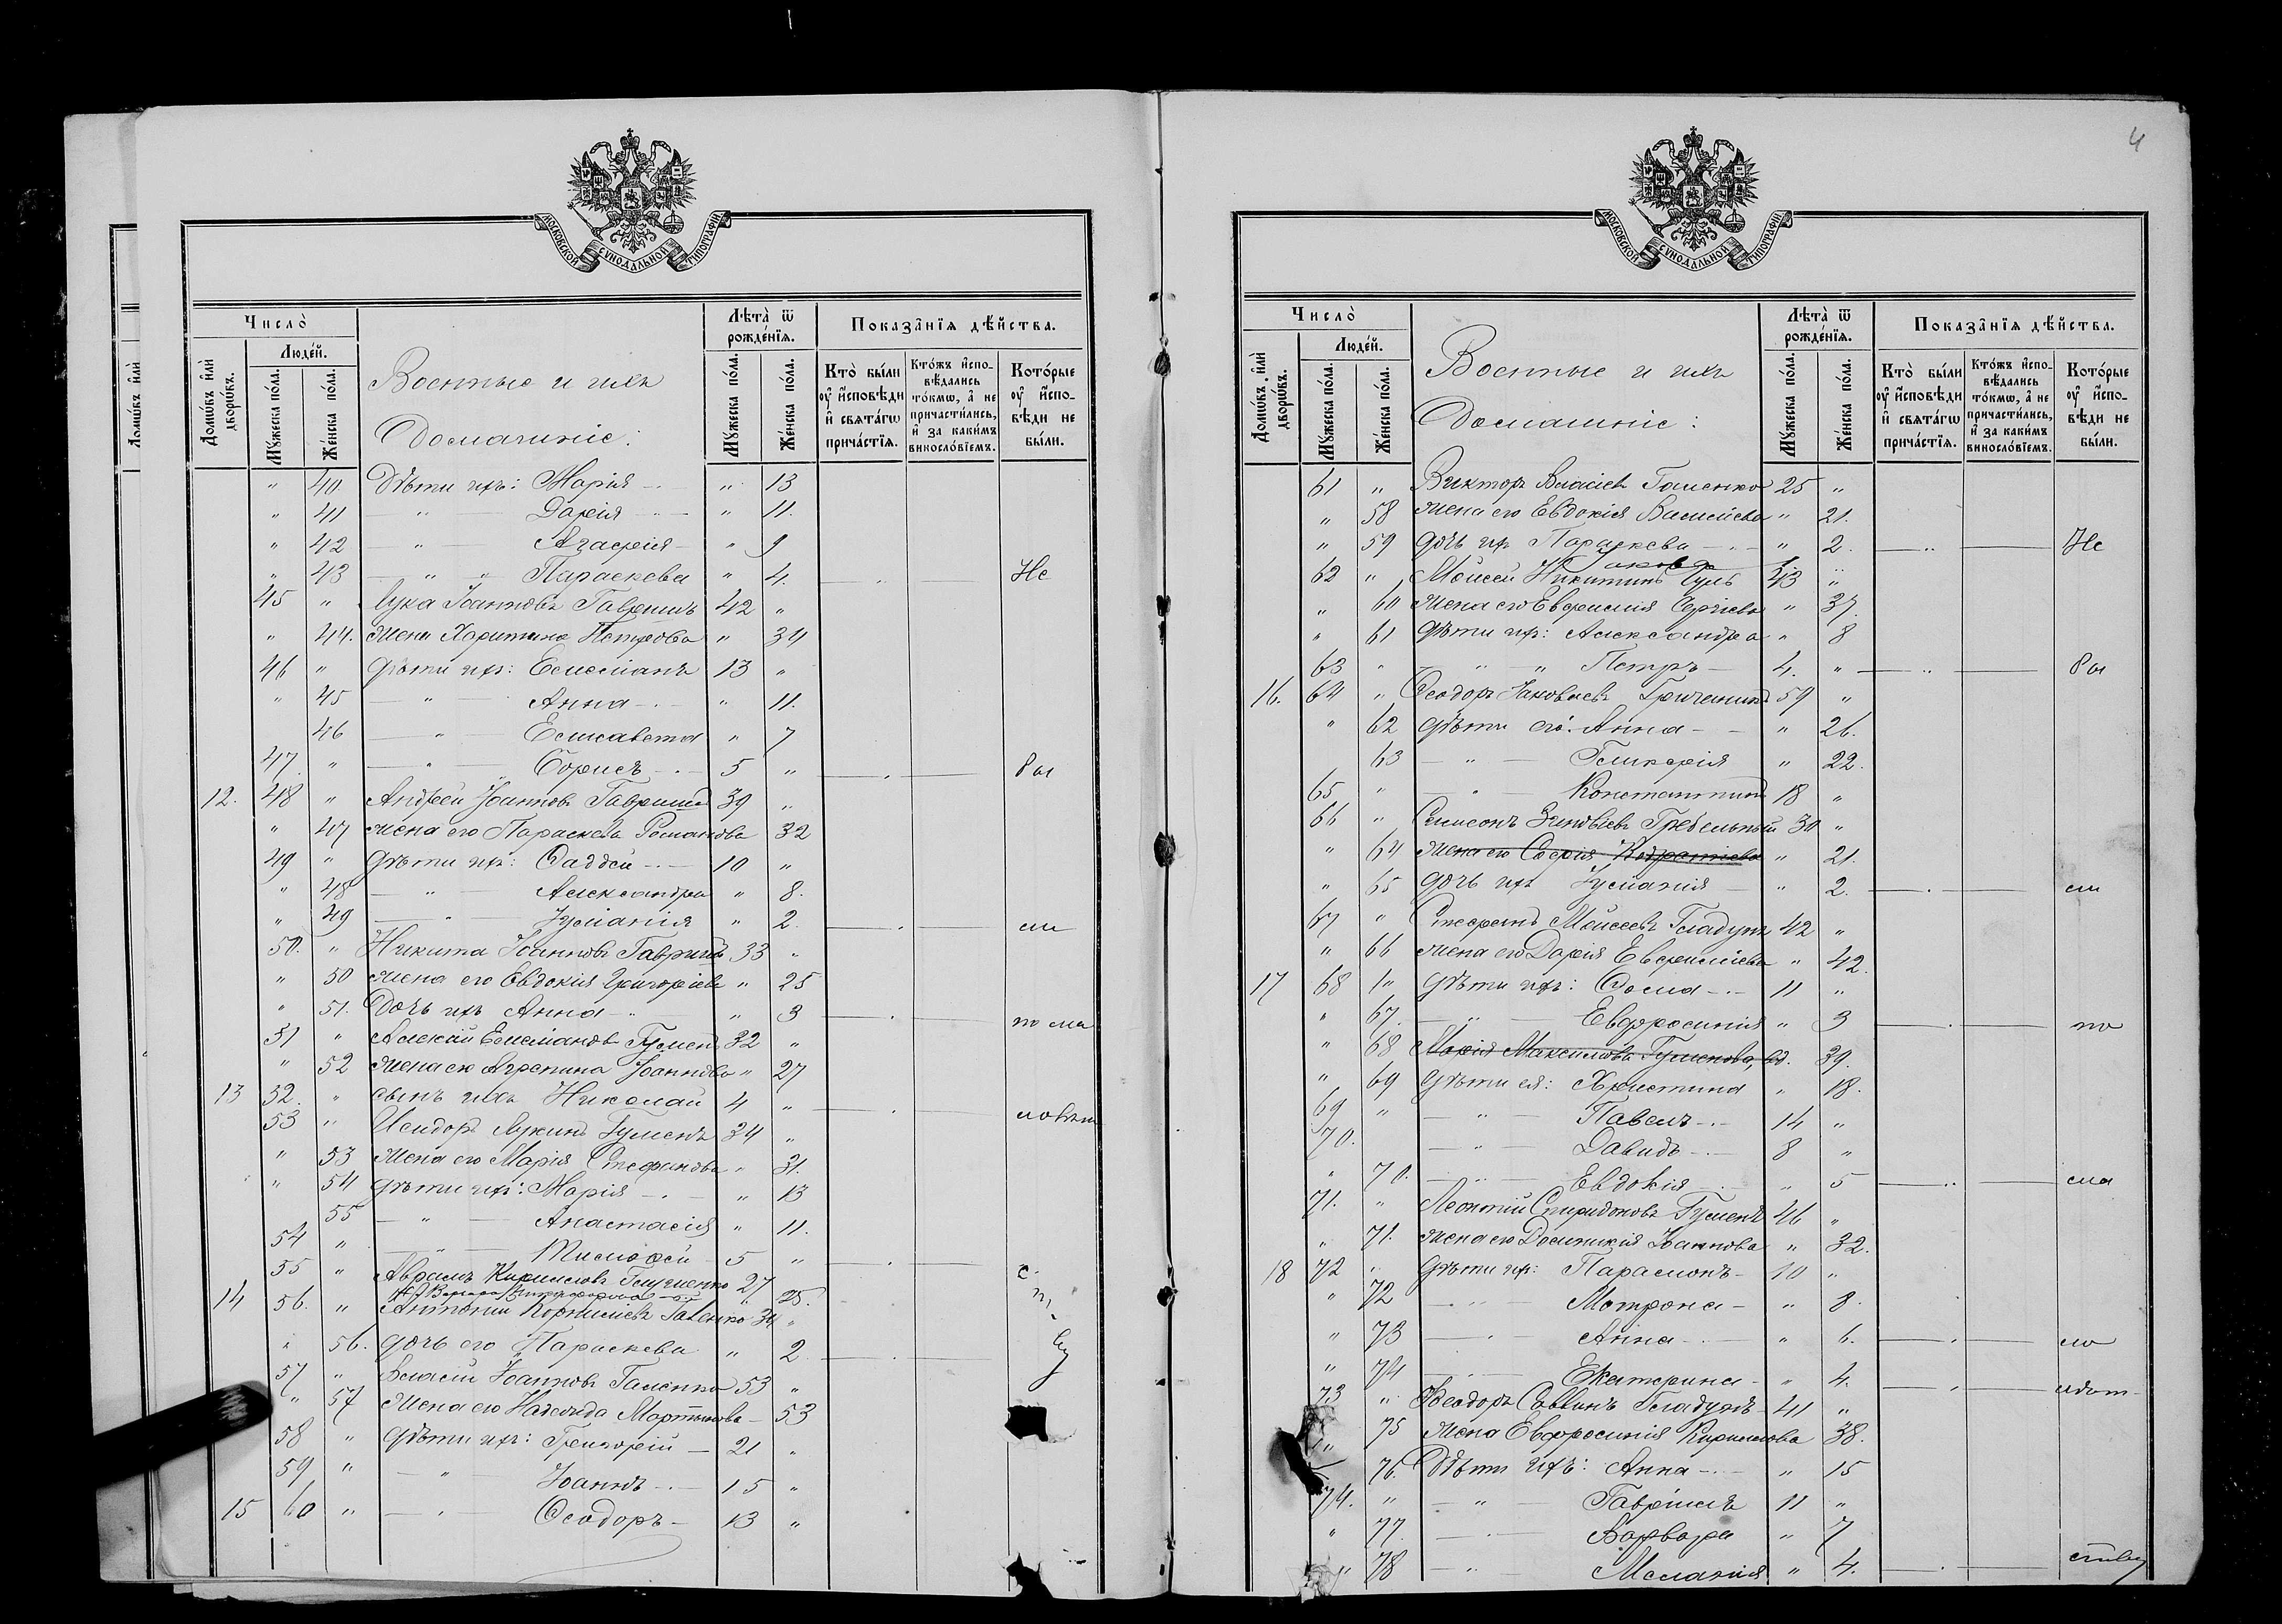 4
МОСКОВСКОЙ СѴНОДАЛЬНОЙ ТИПОГРАФІИ
Число̀
Людéй.
Лѣта̀ ѿ рождéнїѧ.
Показа̑нїѧ дѣ́йства.
Домѡ́въ и҆лѝ дворѡ́въ.
Мꙋ́жеска по́ла.
Же́нска по́ла.
Военные и ихъ Домашніе:
Мꙋ́жеска по́ла.
Же́нска по́ла.
Кто̀ бы́ли ѹ҆ и҆́сповѣди и҆ свѧта́гѡ прича́стїѧ.
Кто́жъ и҆спо-вѣ́дались то́кмѡ, а҆ не причасти́лись, и҆ за каки́мъ винослові́емъ.
Кото́рые ѹ҆ и҆́спо-вѣди не бы́ли.
" 40 Дѣти ихъ: Марія " 13
" 41 — " — Дарія " 11.
" 42 — " — Агафія " 9
" 43 — " " Параскева " 4. Не
45 " Лука Іоанновъ Гавришъ 42 "
" 44. жена Харитина Петрова " 34
46 " дѣти ихъ: Емеліанъ 13 "
" 45 — " — Анна " 11.
46 — " — Елисавета " 7
47. " — " — Борисъ 5 " бы
12. 48 " Андрей Іоанновъ Гавришъ 39 "
" 47 жена его Параскева Романова 32
49 " дѣти ихъ: Фаддей 10 "
" 48 — " — Александра " 8.
" 49 — " — Іуліанія " 2. ли
50. " Никита Іоанновъ Гавришъ 33 "
" 50 жена его Евдокія Григоріева " 25
" 51. Дочь ихъ Анна " 3 по ма
51 " Алексій Емеліановъ Гуменъ 32 "
" 52 жена его Агрепина Іоаннова " 27
13 52. " сынъ ихъ Николай 4 "
53 " Исидоръ Лукинъ Гуменъ 34 "
" 53 жена его Марія Стефанова " 31.
" 54 дѣти ихъ: Марія " 13
55 — " — Анастасія " 11.
54 " — " — Тимофей 5 "
55 " Аврамъ Кириловъ 27
Варвара Никифорова 25.
14 56. " Антоній Корниліевъ Галенко 34 "
" 56. дочь его Параскева " 2
57 " Власій Іоанновъ Галенко 53 "
" 57 жена его Надежда Мартинова — 53
58 " дѣти ихъ: Григорій — 21 "
59 " — " — Іоаннъ 15 "
15 60 " — " — Ѳеодоръ 13 "
МОСКОВСКОЙ СѴНОДАЛЬНОЙ ТИПОГРАФІИ
Число̀
Людéй.
Лѣта̀ ѿ рождéнїѧ.
Показа̑нїѧ дѣ́йства.
Домѡ́въ и҆лѝ дворѡ́въ.
Мꙋ́жеска по́ла.
Же́нска по́ла.
Военные и ихъ Домашніе:
Мꙋ́жеска по́ла.
Же́нска по́ла.
Кто̀ бы́ли ѹ҆ и҆́сповѣди и҆ свѧта́гѡ прича́стїѧ.
Кто́жъ и҆спо-вѣ́дались то́кмѡ, а҆ не причасти́лись, и҆ за каки́мъ винослові́емъ.
Кото́рые ѹ҆ и҆́спо-вѣди не бы́ли.
61 " Викторъ Власіевъ Галенко 25 "
" 58 жена его Евдокія " 21.
" 59 дочь ихъ Параскева " 2. Не
62 " Моисей Никитинъ 43 "
" 60 жена его Евфимія Сергіева " 37.
" 61 дѣти ихъ: Александра " 8
63 " — " " Петръ 4. " бы
16. 64 " Ѳеодоръ Іаковлевъ 59 "
" 62 дѣти его: Анна " 26.
63 — " — Гликерія " 22.
65 " — " — Константинъ 18 "
66 " Симеонъ Зиновіевъ Гребельный 30 "
" 64 жена его Софія Кодратіева " 21.
" 65 дочь ихъ Іуліанія " 2. ли
67 " Стефанъ Моисеевъ Гладунъ 42 "
" 66 жена его Дарія Евфиміева " 42.
17 68 " дѣти ихъ: Ѳома 11 "
" 67. — " — Евфросинія " 3 по
" 68 Марія Максимова Гуменова, вд. 39.
" 69 дѣти ея: Христина " 18.
69 " — " — Павелъ 14 "
70. — " — Давидъ 8 "
" 70. — " — Евдокія " 5 ма
71. " Леонтій Спиридоновъ Гуменъ 46 "
" 71. жена его Домникія Іоаннова " 32.
18 72 " дѣти ихъ: Парамонъ 10 "
" 72 — " — Мотрона " 8.
" 73 — " — Анна " 6. ло
" 74 — " — Екатерина " 4.
73 " Ѳеодоръ Саввинъ Гладунъ 41 "
" 75 жена Евфросинія Кирилова 38.
76. Дѣти ихъ: Анна " 15
74. " — " — Гавріилъ 11 "
" 77 — " — Варвара " 7
" 78 — " — Меланія " 4.